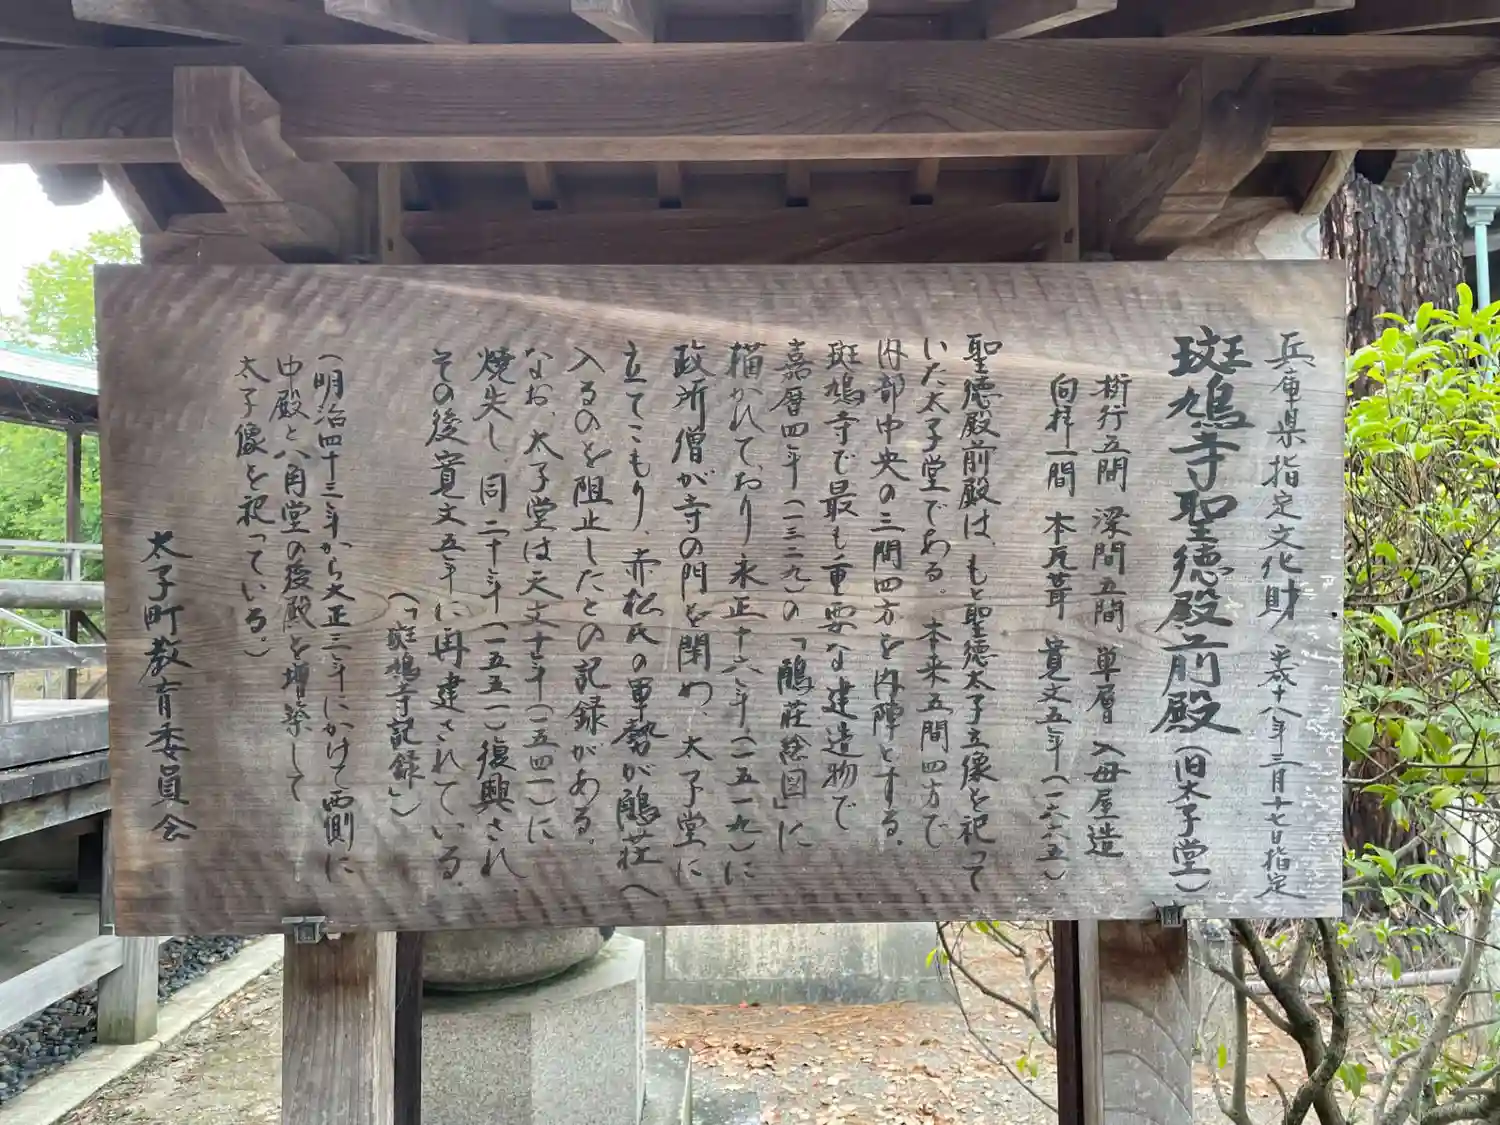 兵庫県指定文化財 平成十八年三月十七日指定
斑鳩寺聖徳殿前殿(旧太子堂)
桁行五間 梁間五間 単層 入母屋造
向拝一間 本瓦葺 寛文五年(一六六五)
聖徳殿前殿は、もと聖徳太子立像を祀って
いた太子堂である。本来五間四方で
内部中央の三間四方を内陣とする。
斑鳩寺で最も重要な建造物で
嘉暦四年(一三二九)の「鵤荘絵図」に
描かれており永正十六年(一五一九)に
政所僧が寺の門を閉め、太子堂に
立てこもり、赤松氏の軍勢が鵤荘へ
入るのを阻止したとの記録がある。
なお、太子堂は天文十年(一五四一)に
焼失し同二十年(一五五一)復興され
その後寛文五年に再建されている。
(「斑鳩寺記録」)
(明治四十三年から大正三年にかけて西側に
中殿と八角堂の後殿を増築して
太子像を祀っている。)
太子町教育委員会